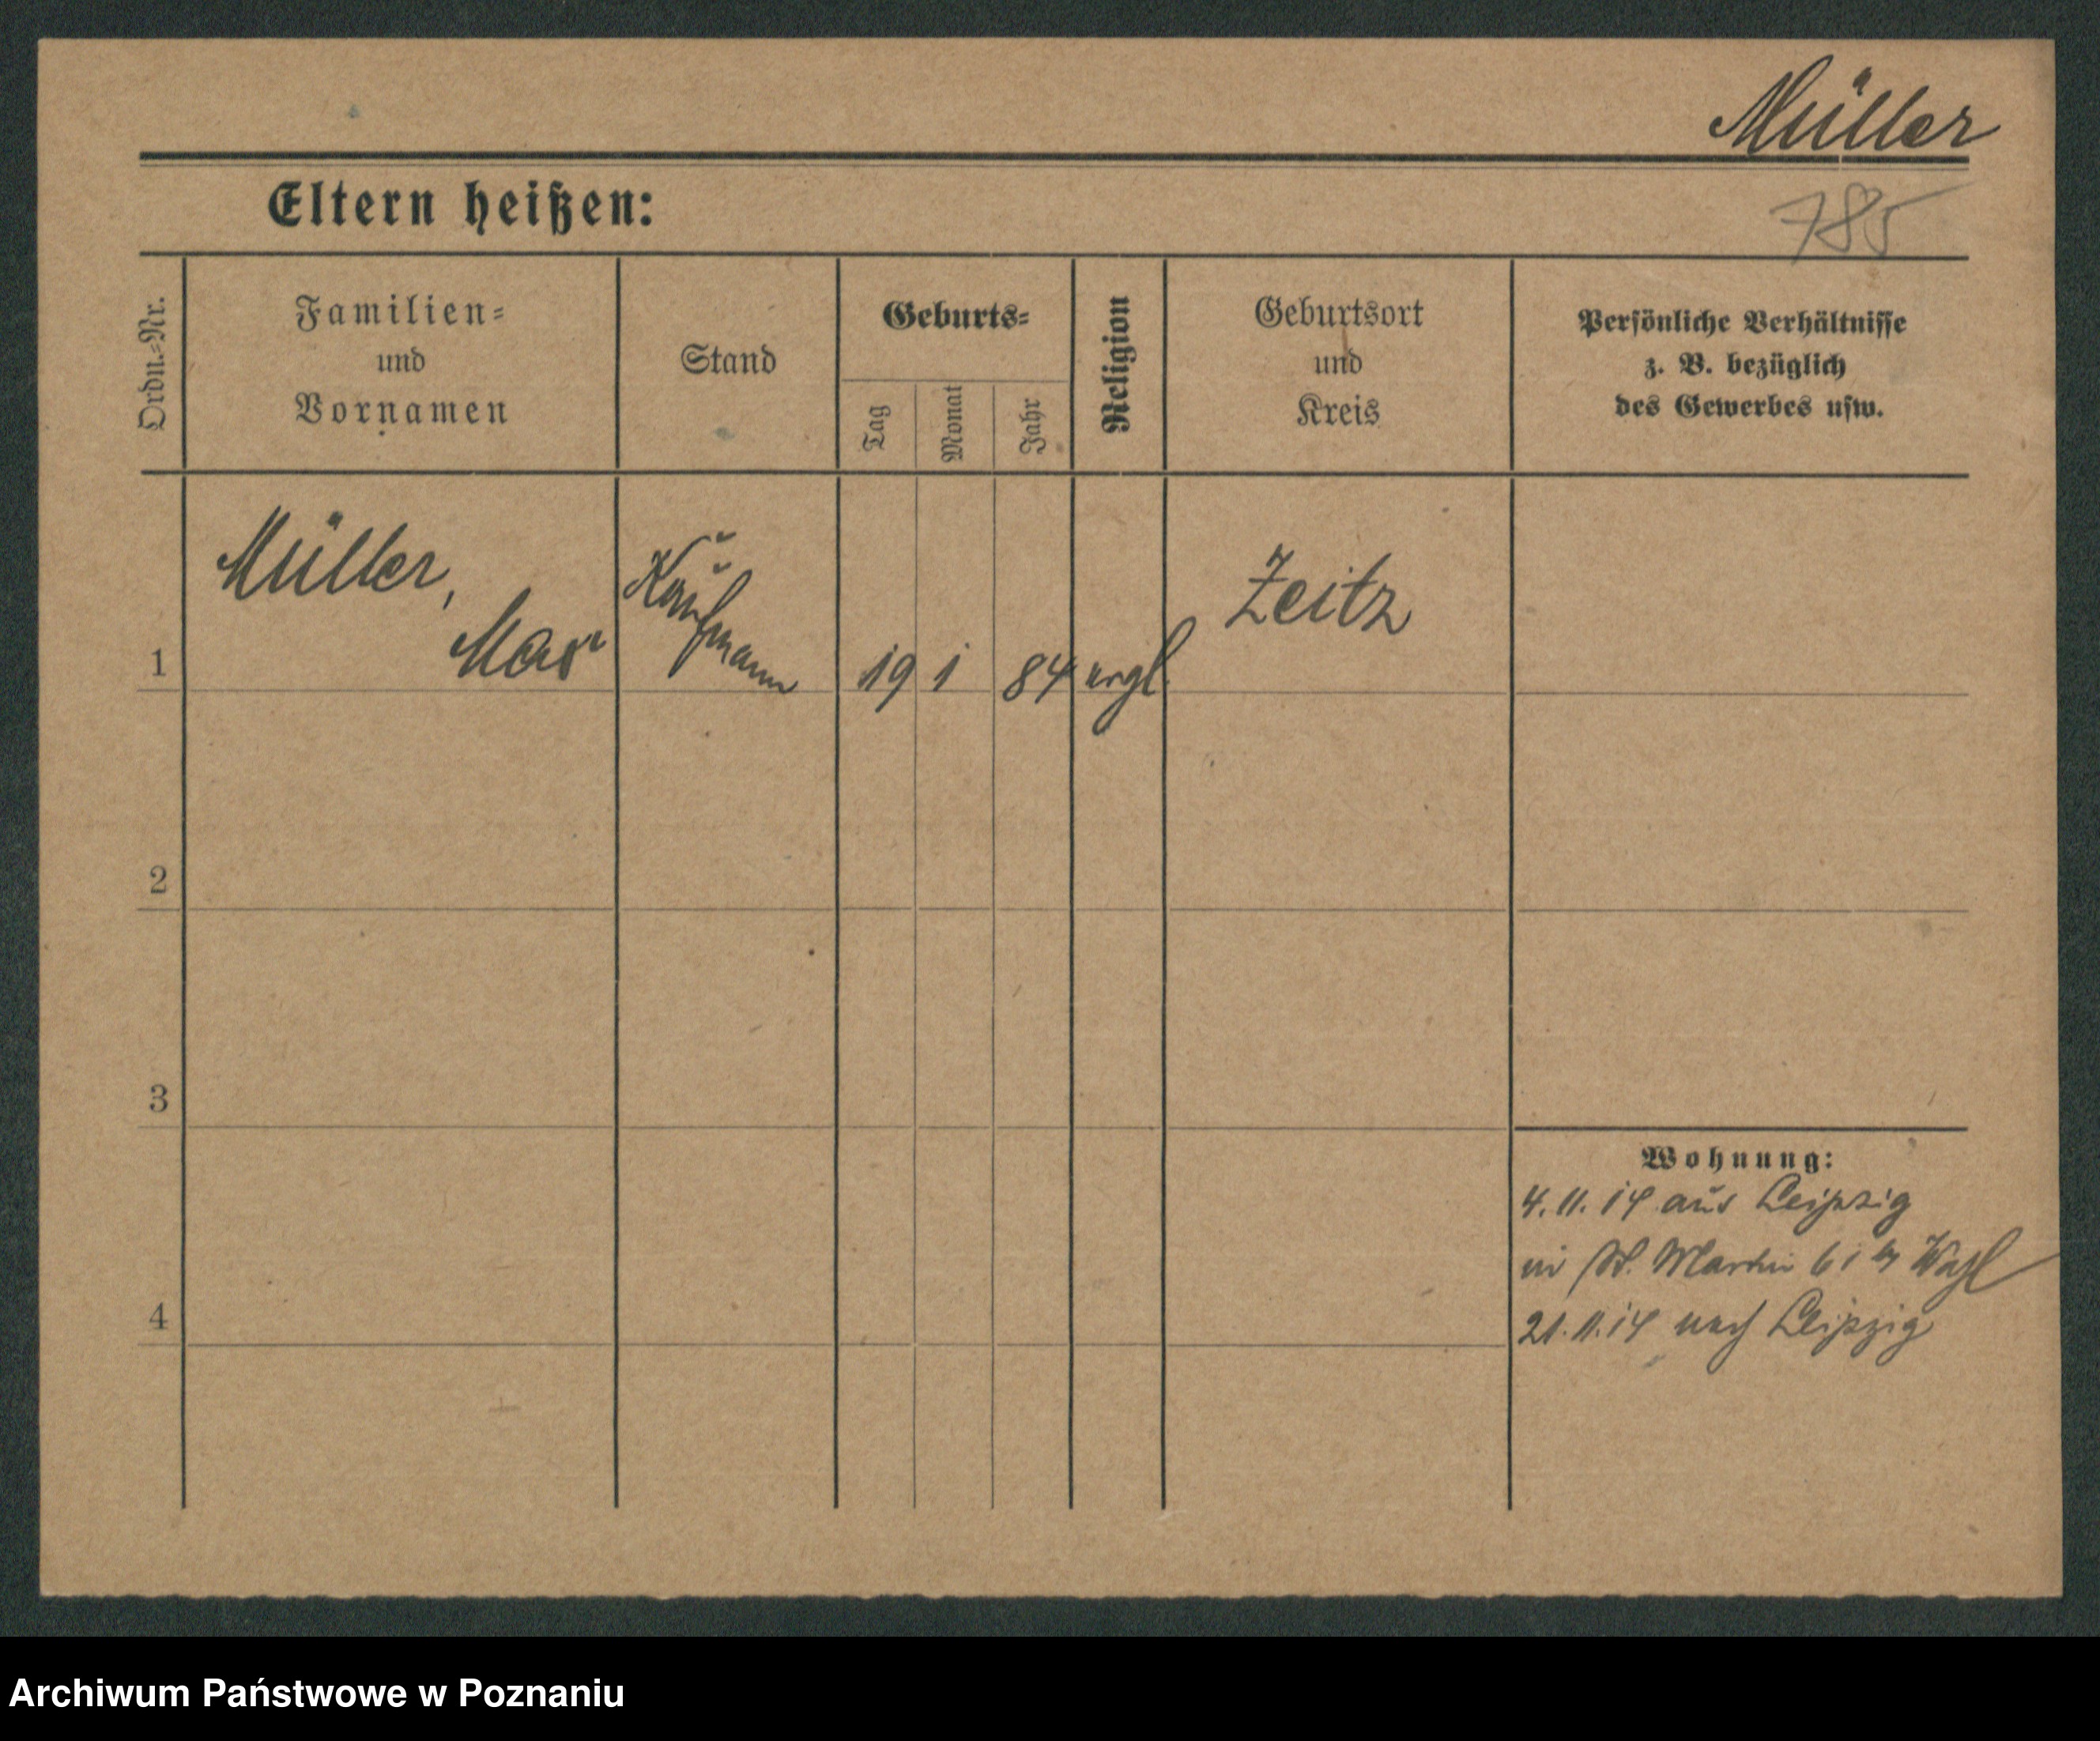 Müller
785
Eltern heißen:
Ordn.-Nr.
Familien-
und
Vornamen
Stand
Geburts-
Tag
Monat
Jahr
Religion
Geburtsort
und
Kreis
Persönliche Verhältnisse
z. B. bezüglich
des Gewerbes usw.
1
Müller,
Max
Kauf
mann
19 1 84
Zeitz
2
3
4
Wohnung:
4.11.14 aus Leipzig
in St. Martin
21.11.14 nach Leipzig
Archiwum Państwowe w Poznaniu